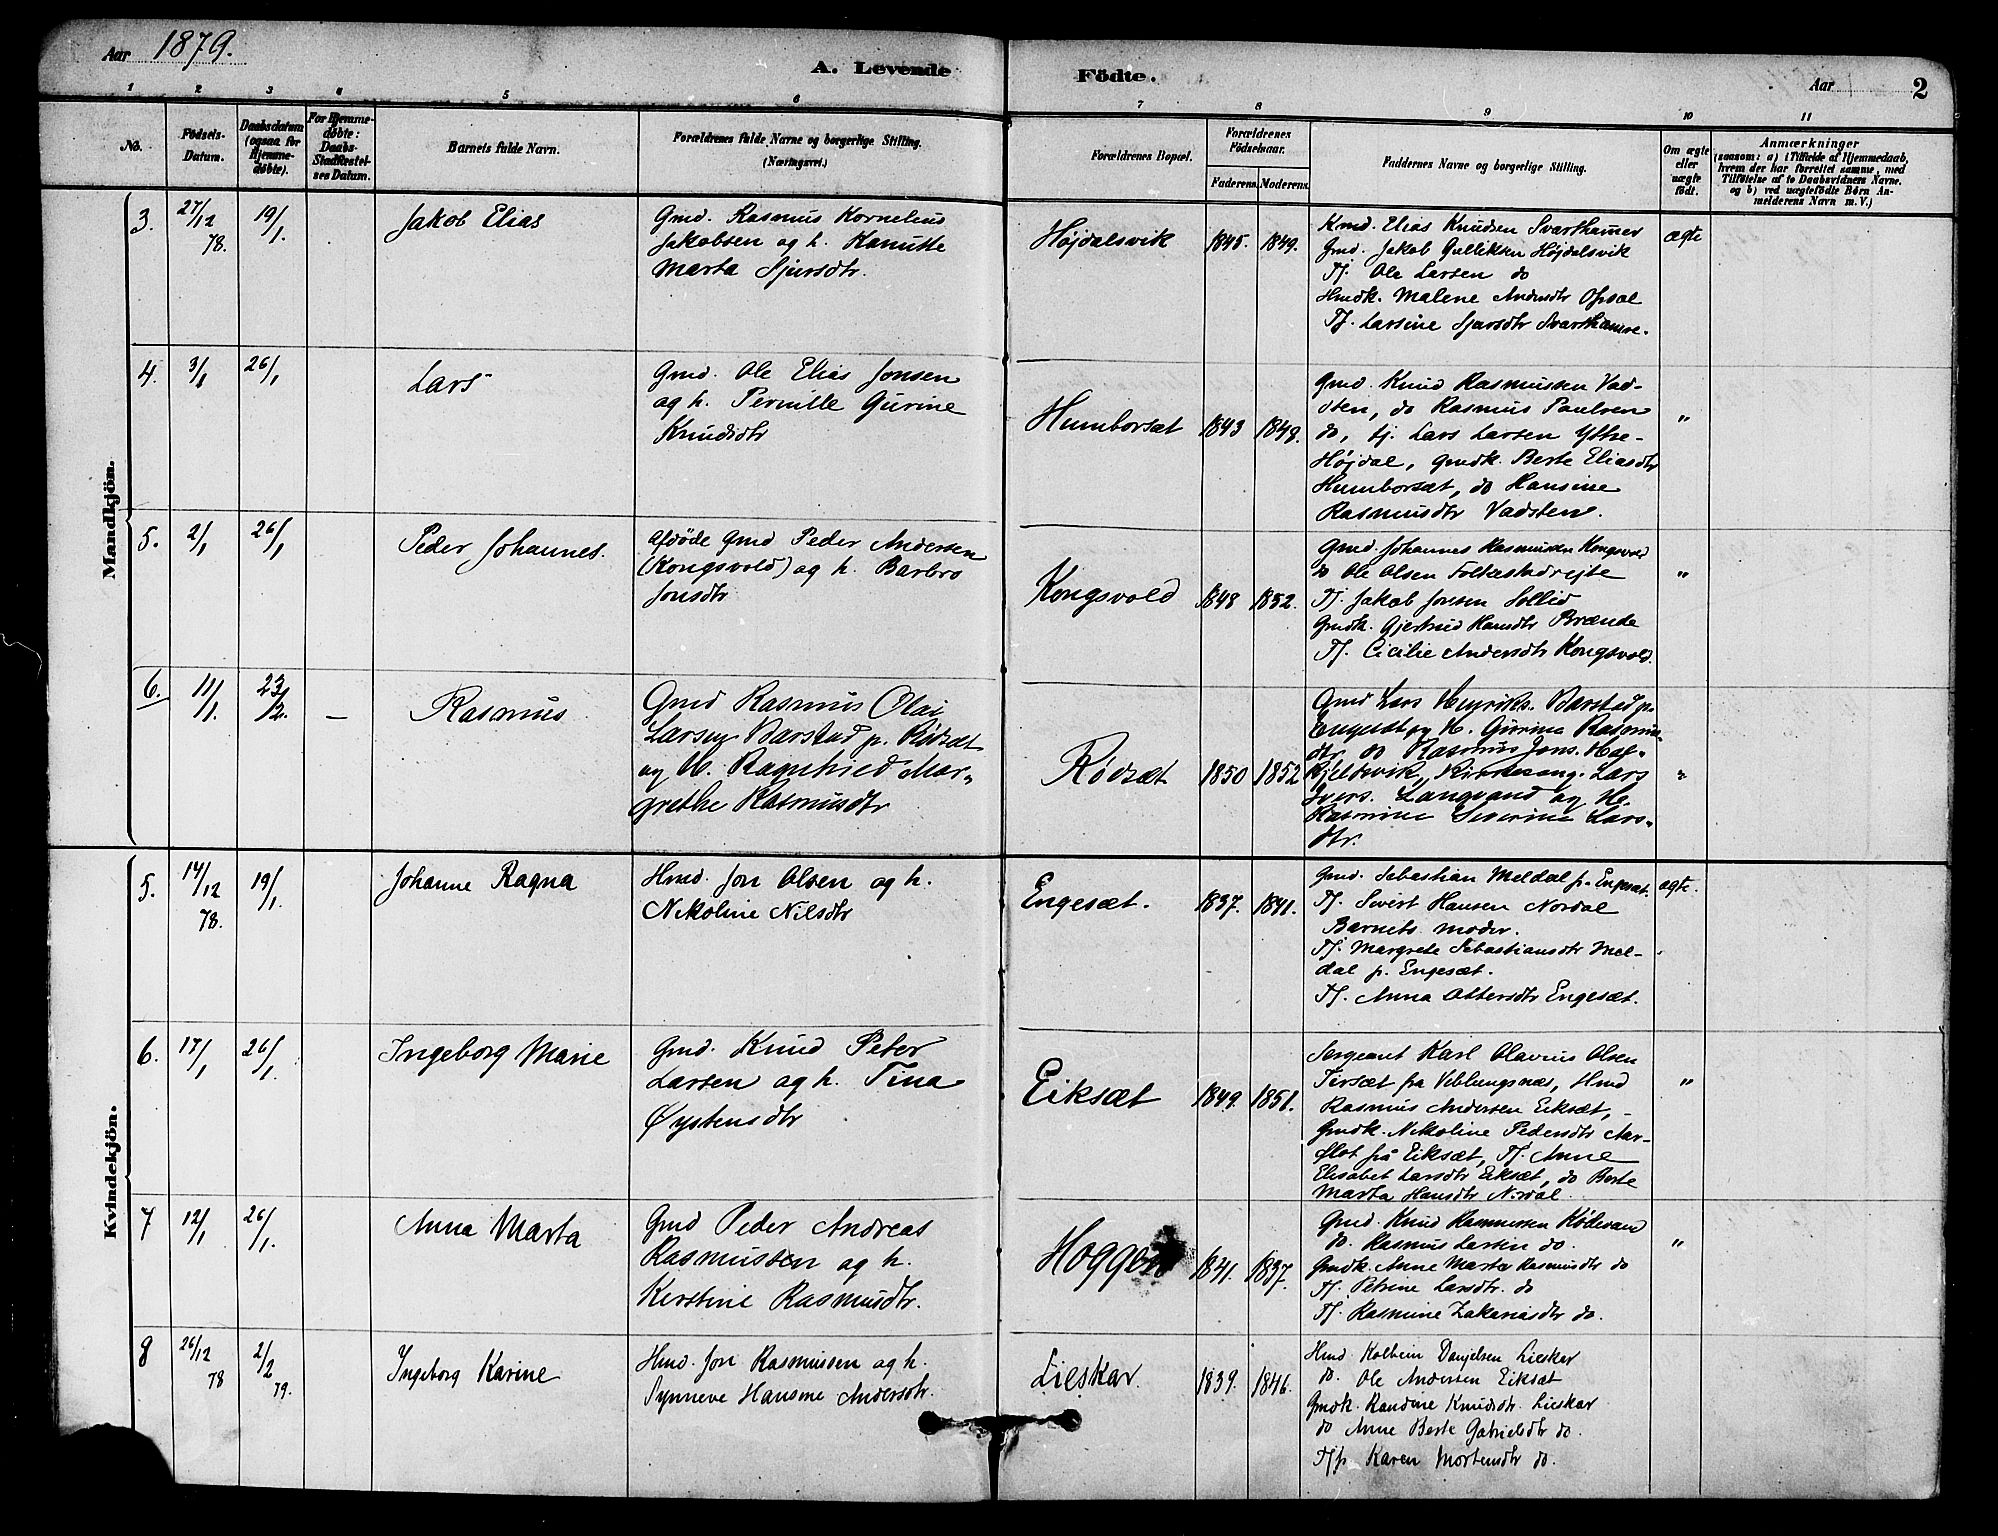 Aar 1879.
A. Levende Födte.
Aar
2
1 2 3 4 5 6 7 8 9 10 11
No.
Fødsels-
Datum.
Daabsdatum
(ogsaa for
Hjemme-
døbte).
For Hjemme-
døbte:
Daabs-
Stadfæstel-
ses Datum.
Barnets fulde Navn.
Forældrenes fulde Navne og borgerlige Stilling.
(Næringsvei.)
Forældrenes Bopæl.
Forældrenes
Fødselsaar.
Faderens. Moderens.
Faddernes Navne og borgerlige Stilling.
Om ægte
eller
uægte
født.
Anmærkninger
(saasom: a) i Tilfælde af Hjemmedaab,
hvem der har forrettet samme, med
Tilføielse af to Daabsvidners Navne,
og b) ved uægtefødte Børn An-
melderens Navn m. V.)
Mandkjön.
3. 27/12 78. 19/1. Jakob Elias
Gmd. Rasmus Kornelius
Jakobsen og h. Kanutte
Marta Sjursdtr.
Højdalsvik 1845. 1849.
Kmd. Elias Knudsen Svarthamer
Gmd. Jakob Gullikken Højdalsvik
Tj. Ole Larsen do
Hmdk. Malene Andersdtr Opsal
Tj. Larsine Sjursdtr Svarthamre.
ægte
4. 3/1 26/1 Lars
Gmd. Ole Elias Jonsen
og h. Pernille Gurine
Knudsdtr
Humborsæt 1843 1849.
Gmd. Knud Rasmussen Vad-
sten, do Rasmus Paulsen
do, tj. Lars Larsen Ytre-
Højdal, gmdk. Berte Eliasdtr
Humborsæt, do Hansine
Rasmusdtr Vadsten.
"
5. 2/1 26/1 Peder Johannes.
afdøde Gmd Peder Andersen
(Kongsvold) og h. Barbro
Jonsdtr
Kongsvold 1848 1852.
Gmd. Johannes Rasmussen Kongsvold
do Ole Olsen Folkestadrejte
Tj. Jakob Jonsen Sollid
Gmdk. Gjertrud Hansdtr Brænde
Tj. Cicilie Andersdtr Kongsvold.
"
6. 11/1. 23/2. – Rasmus
Gmd Rasmus Olai
Larsen Barstad p. Rødsæt
og H. Ragnfried Mar-
grethe Rasmusdtr
Rødsæt 1850 1852
Gmd Lars Henriks. Barstad p.
og H. Gurina Rasmus-
dtr. do Rasmus Jons.
Kjeldsvik, Kirkesang. Lars
Ivers. Langvand og H.
Rasmine Severine Lars-
dtr.
"
Kvindekjön.
5. 14/12 78. 19/1. Johanne Ragna
Hmd. Jon Olsen og h.
Nikoline Nilsdtr
Engesæt. 1837. 1841.
Gmd. Sebastian Meldal p. Engesæt.
Tj. Sivert Hansen Nordal
Barnets moder.
Tj. Margrete Sebastiansdtr Mel-
dal p. Engesæt.
Tj. Anna Ottersdtr Engesæt.
ægte.
6. 17/1 26/1. Ingeborg Marie
Gmd. Knud Peter
Larsen og h. Tina
Øystensdtr
Eiksæt 1849. 1851.
Sergeant Karl Olavius Olsen
Tirsæt fra Veblungsnæs, Hmd
Rasmus Andersen Eiksæt,
Gmdk. Nikoline Pedersdtr Aar-
flot på Eiksæt, Tj. Anne
Elisabet Larsdtr Eiksæt, do Berte
Marta Hansdtr Nordal.
"
7 12/1 26/1. Anna Marta
Gmd Peder Andreas
Rasmussen og h.
Kerstine Rasmusdtr.
Hoggen 1841. 1837.
Gmd. Knud Rasmussen Rødesand
do. Rasmus Larsen do.
Gmdk. Anne Marta Rasmusdtr do
Tj. Petrine Larsdtr. do
Tj. Rasmine Zakariasdtr do.
"
8 26/12 78 2/2 79. Ingeborg Karine
Hmd. Jon Rasmussen og h.
Synneve Hansine Andersdtr.
Lieskar. 1839. 1846.
Hmd Kolbein Danjelsen Lieskar
do. Ole Andersen Eiksæt
Gmdk. Randine Knudsdtr. Lieskar
do Anne Berte Gabrielsdtr do.
Tjp Karen Mortensdtr do.